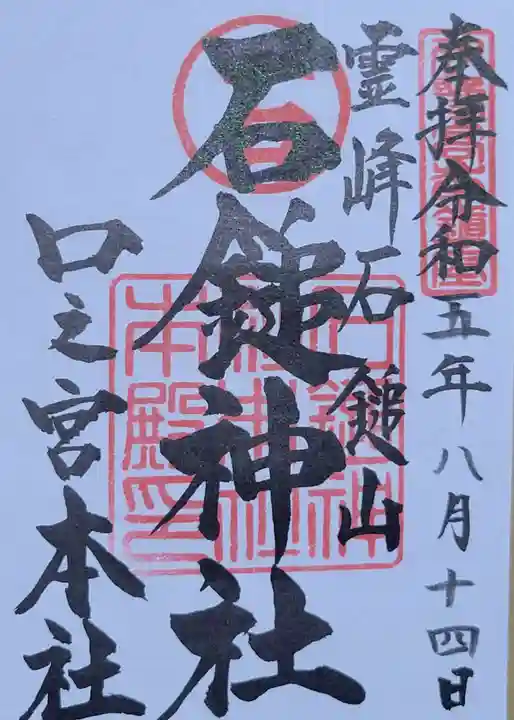 奉拝令和五年八月十四日
霊峰石鎚山
石鎚神社
口之宮本社
石鎚神社本殿印